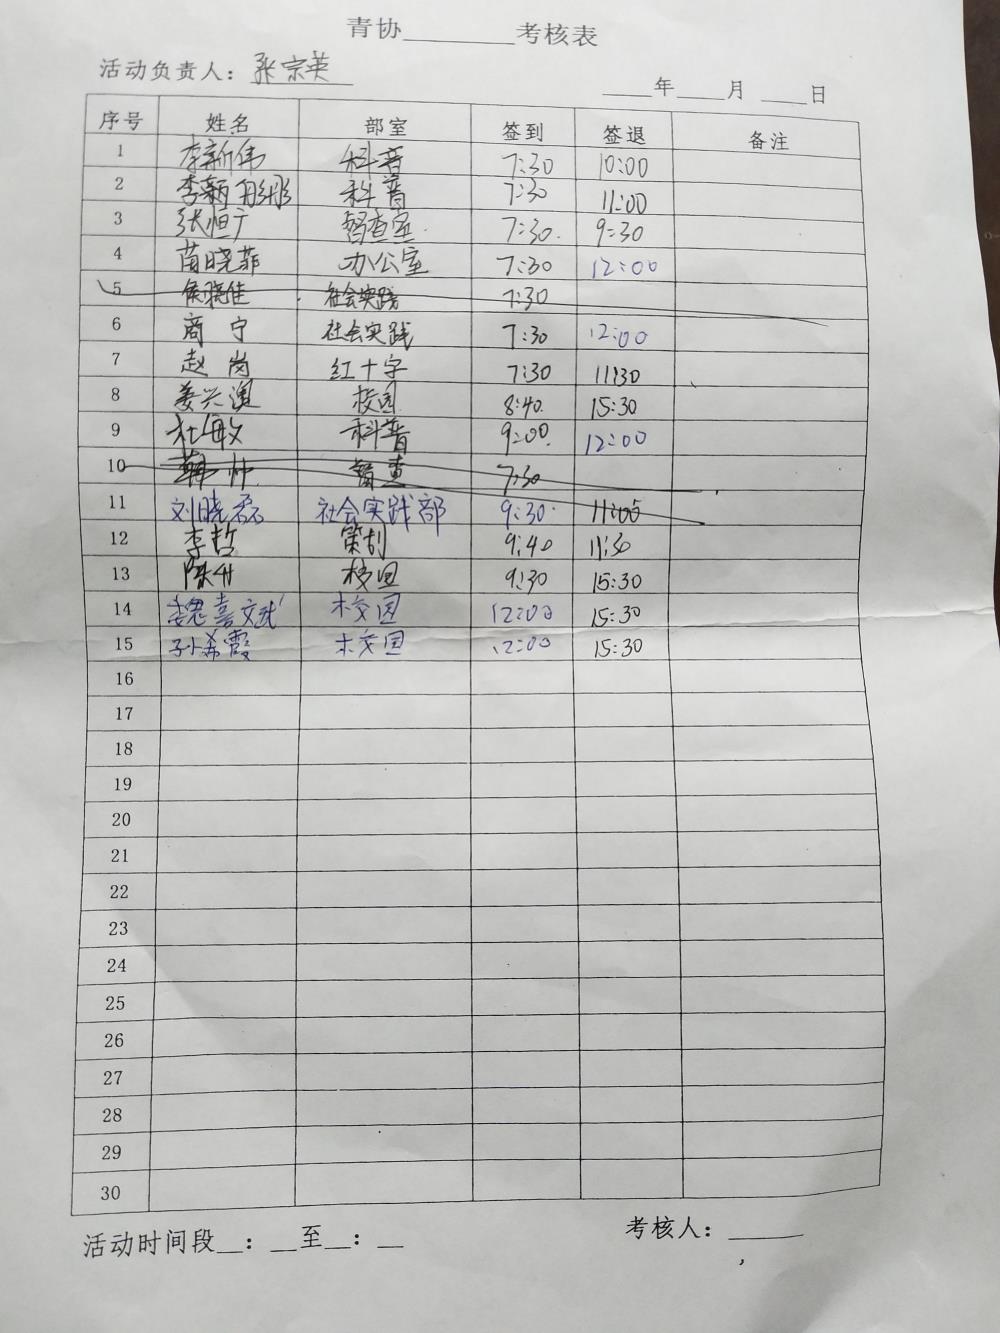 青协________考核表
活动负责人：张宗英
____年____月____日
序号 姓名 部室 签到 签退 备注
1 李新伟 科普 7:30 10:00
2 李新彤 科普 7:30 11:00
3 张恒广 督查室 7:30 9:30
4 苗晓菲 办公室 7:30 12:00
5 侯晓佳 社会实践 7:30
6 商宁 社会实践 7:30 12:00
7 赵岗 红十字 7:30 11:30
8 姜兴澳 校园 8:40 15:30
9 杜敏 科普 9:00 12:00
10 韩帅 督查 7:30
11 刘晓磊 社会实践部 9:30 11:00
12 李哲 策划 9:40 11:30
13 陈升 校园 9:30 15:30
14 魏嘉斌 校园 12:00 15:30
15 孙希霞 校园 12:00 15:30
16
17
18
19
20
21
22
23
24
25
26
27
28
29
30
活动时间段__：__至__：__ 考核人：______